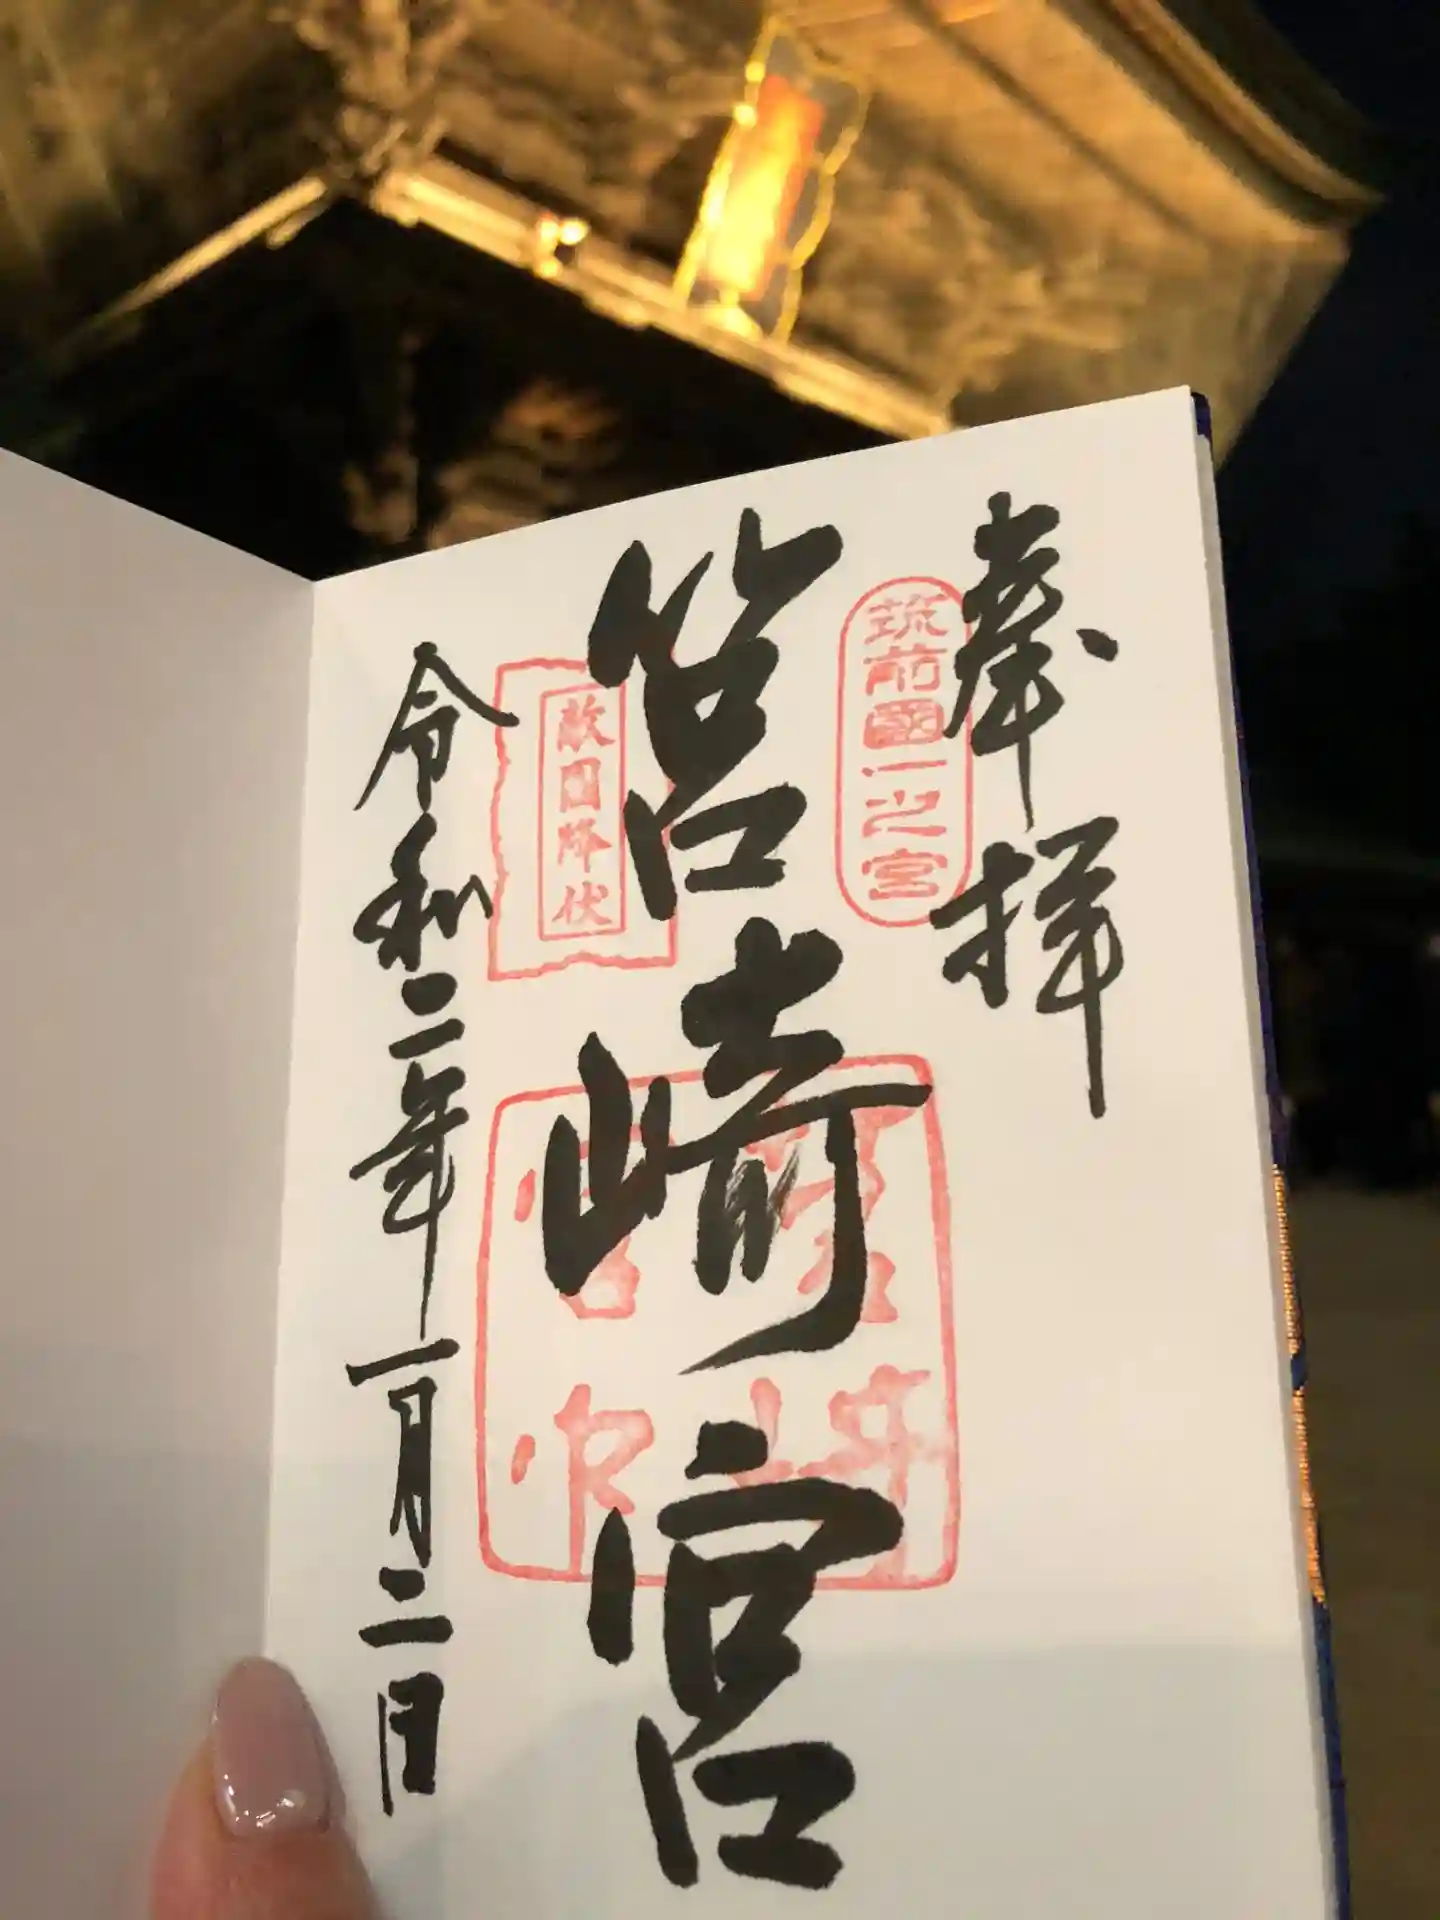 奉拝
筑前國一之宮
筥崎宮
敵国降伏
令和二年一月二日